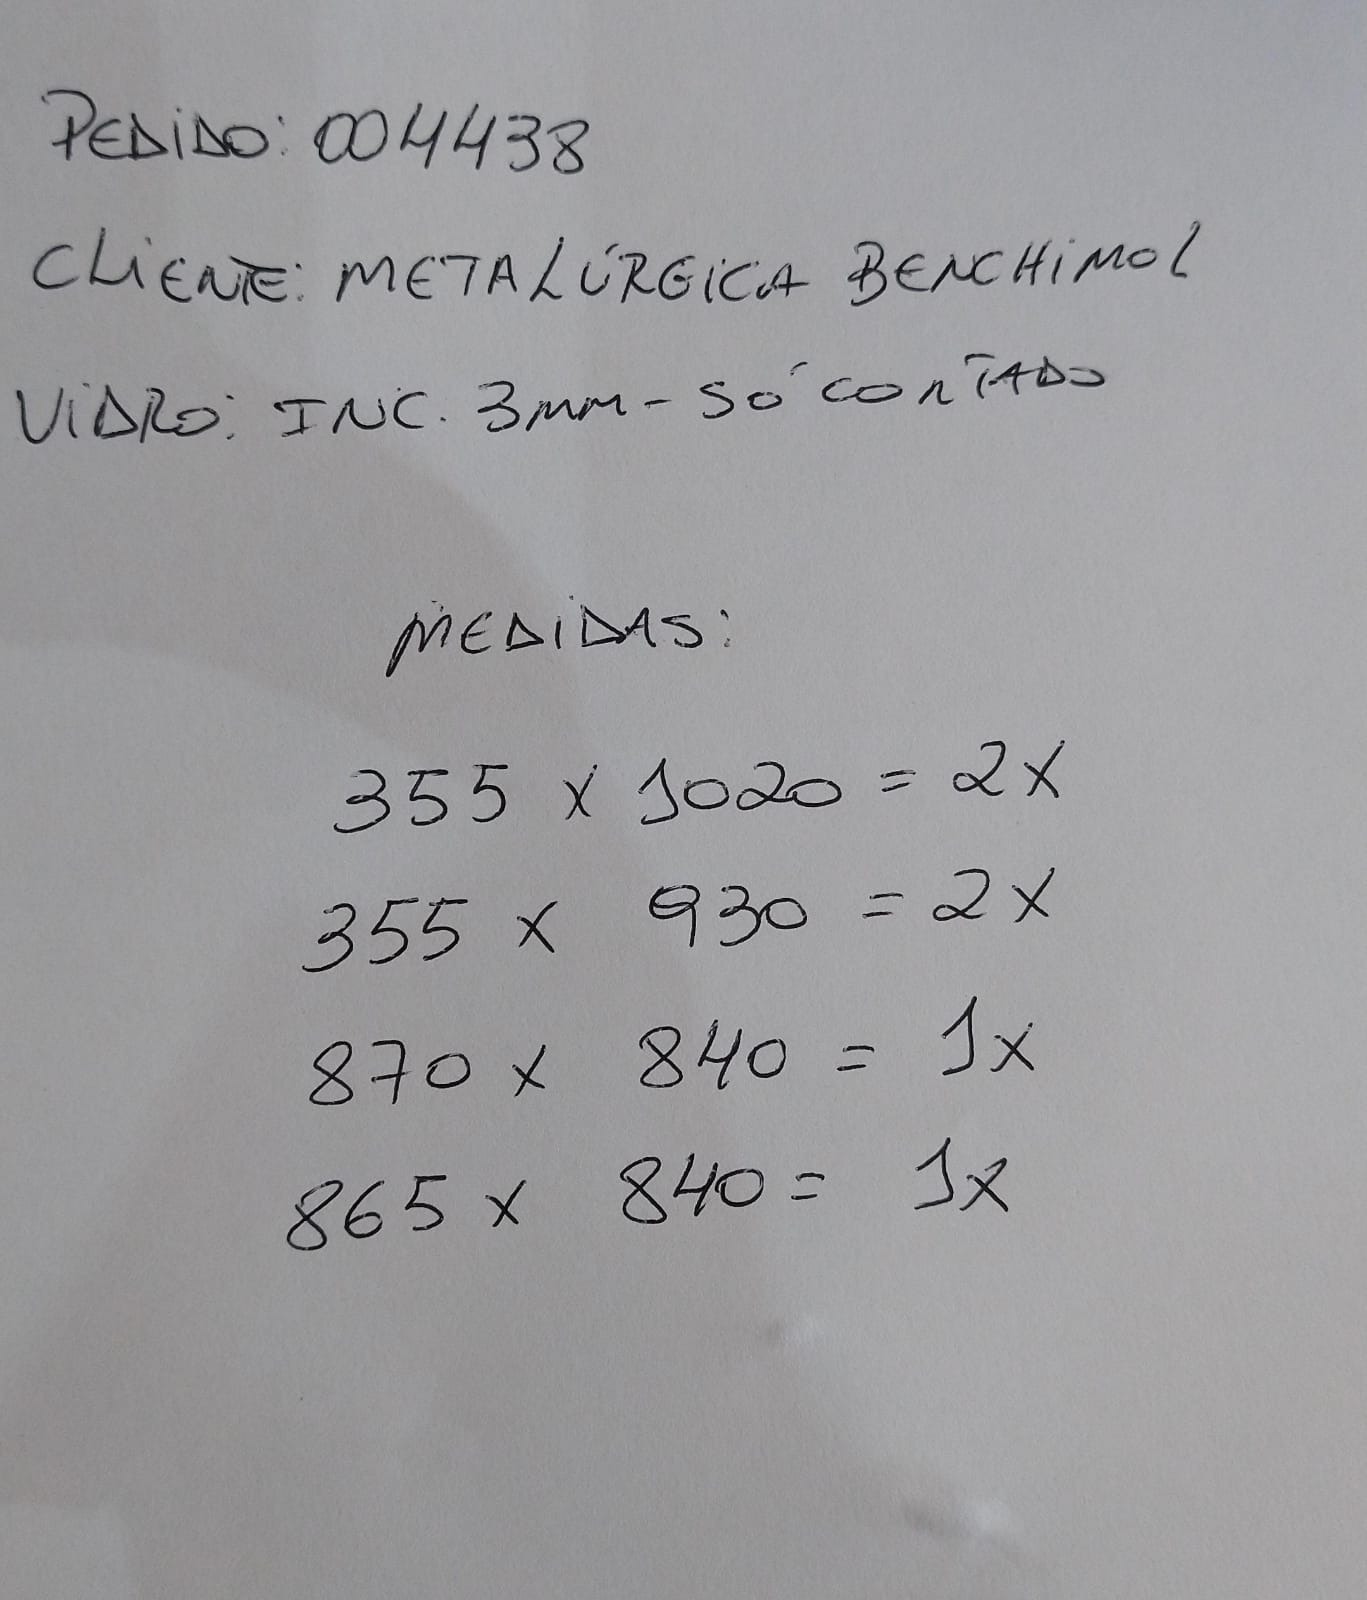 PEDIDO: 004438
CLIENTE: METALÚRGICA BENCHIMOL
VIDRO: INC. 3mm - SÓ CORTADO
MEDIDAS:
355 x 1020 = 2x
355 x 930 = 2x
870 x 840 = 1x
865 x 840 = 1x